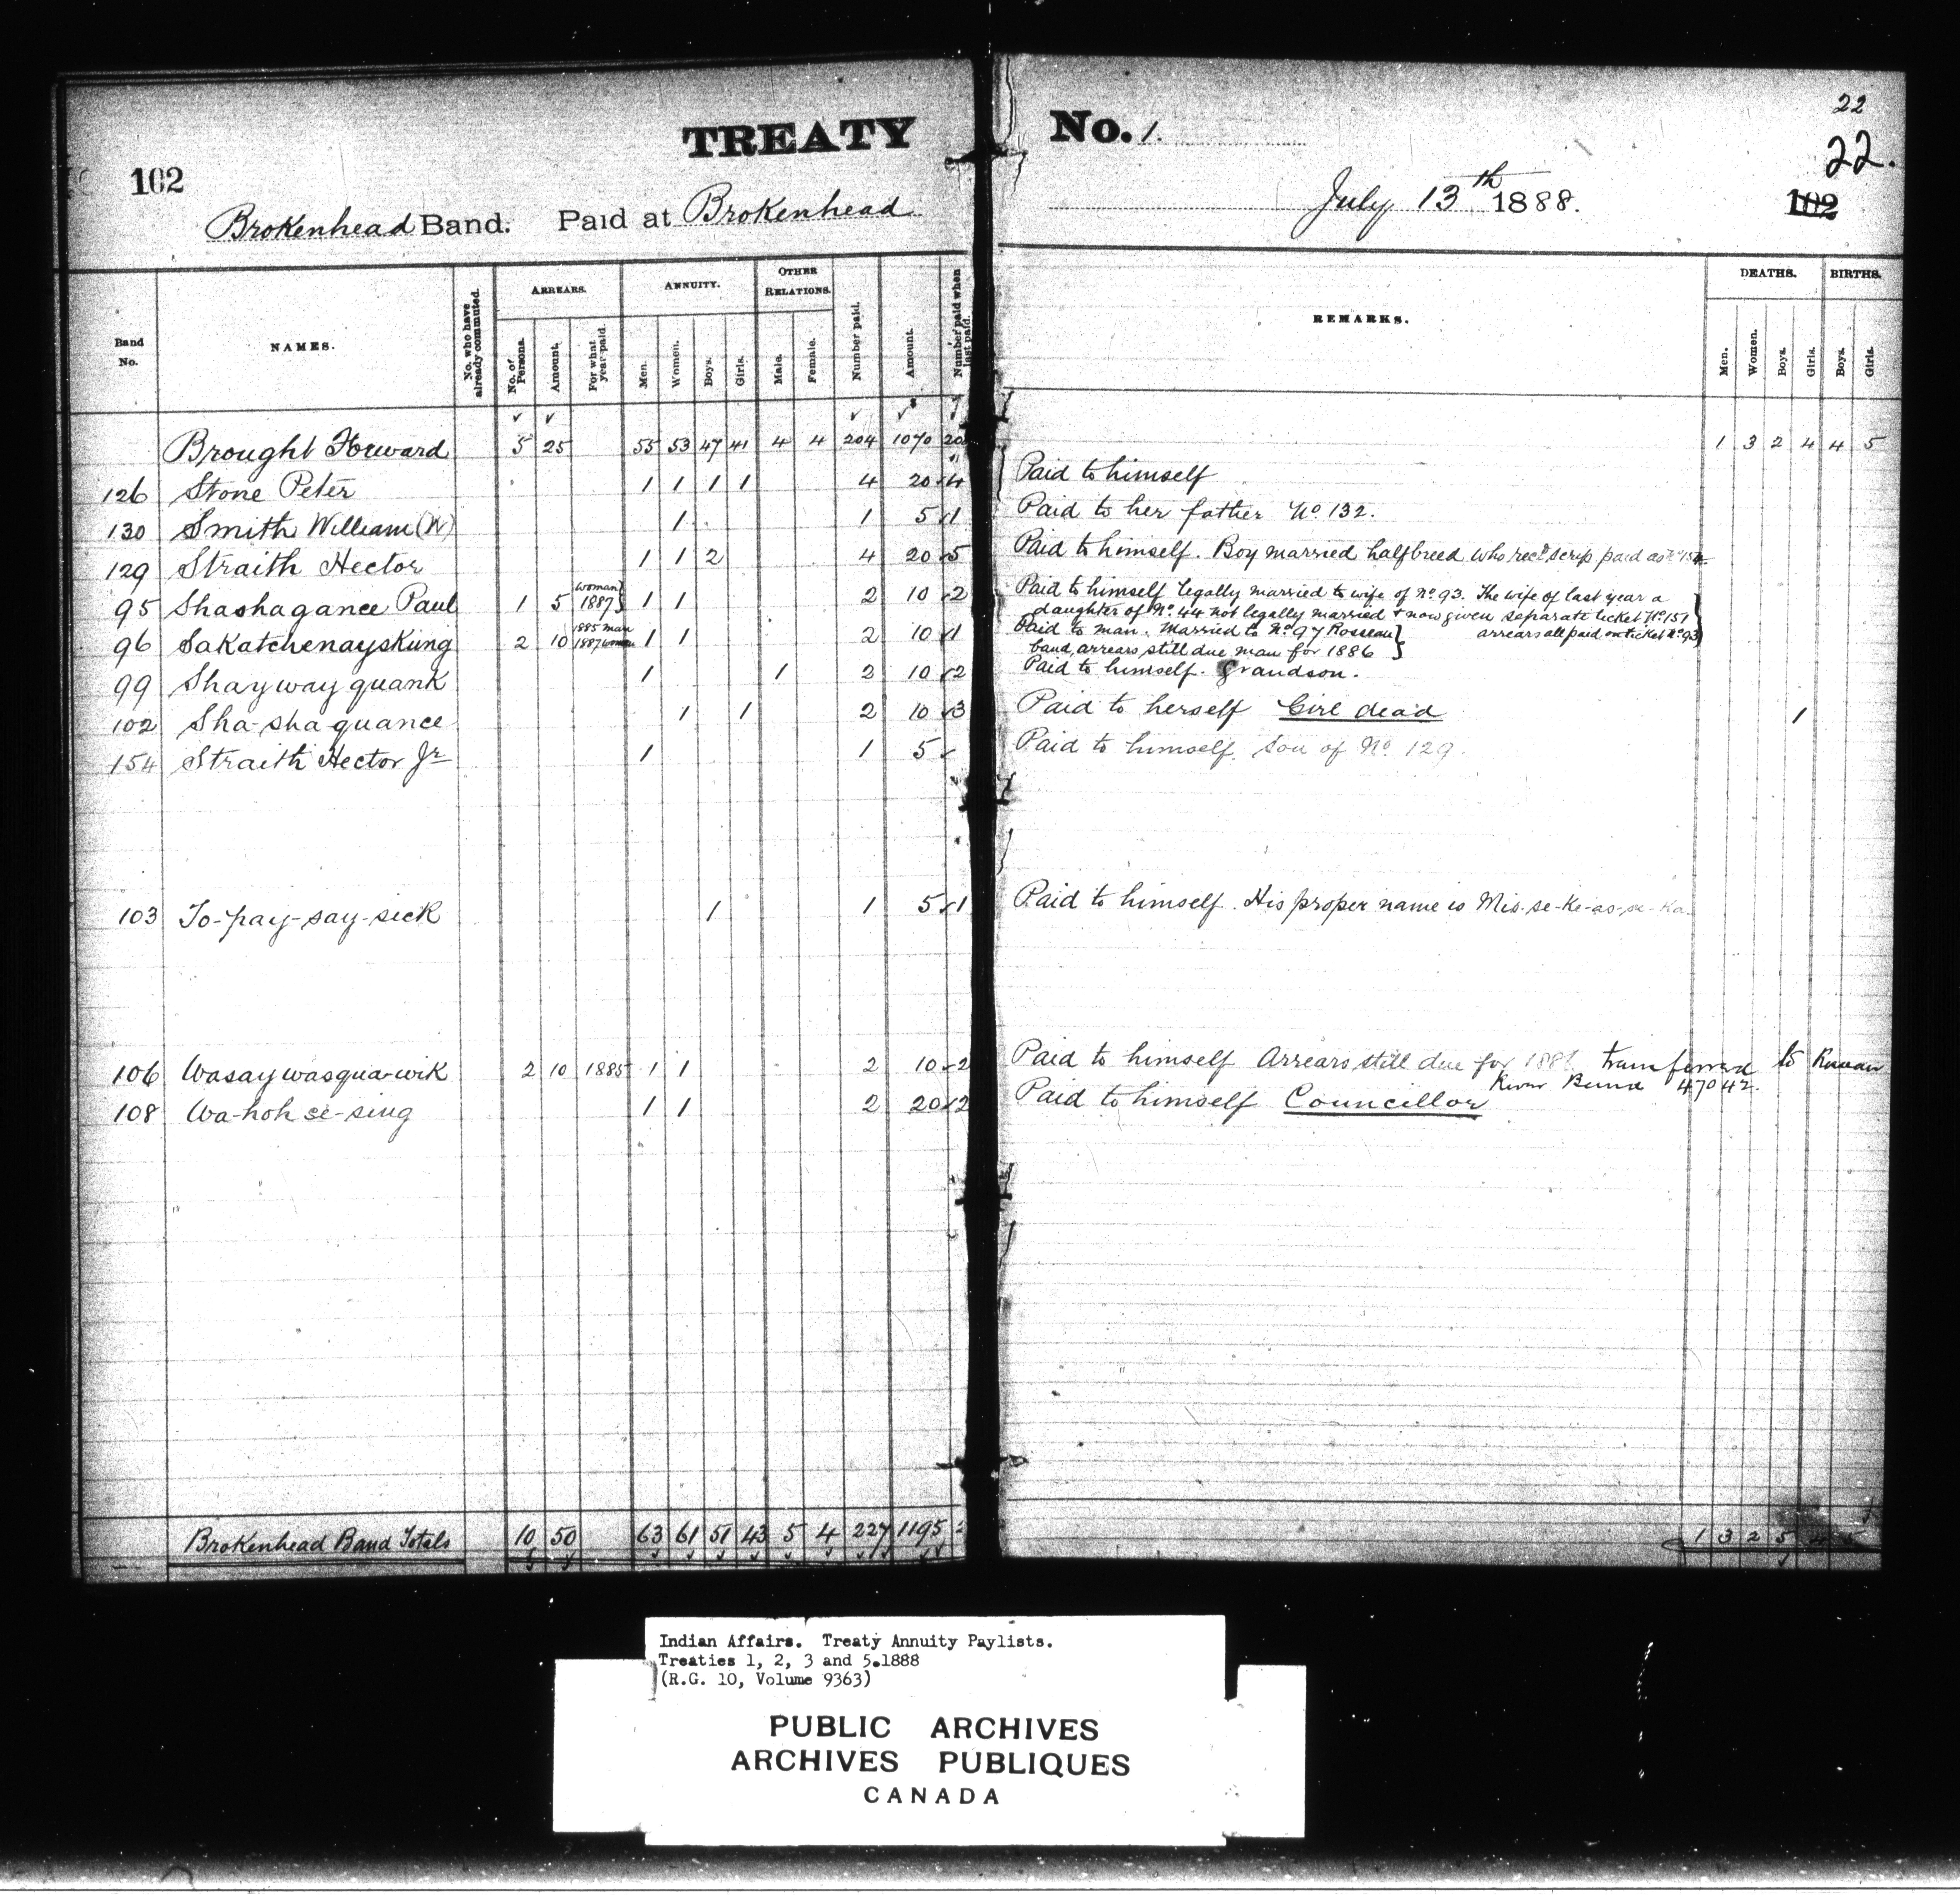 22
TREATY No. 1.
22.
102
102
Brokenhead Band. Paid at Brokenhead July 13th 1888.
Band No.
NAMES.
No. who have already commuted.
ARREARS.
No. of Persons.
Amount.
For what year paid.
ANNUITY.
Men.
Women.
Boys.
Girls.
OTHER RELATIONS.
Male.
Female.
Number paid.
Amount.
Number paid when last paid.
REMARKS.
DEATHS.
Men.
Women.
Boys.
Girls.
BIRTHS.
Boys.
Girls.
Brought Forward 5 25 55 53 47 41 4 4 204 1070 1 3 2 4 4 5
126 Stone Peter 1 1 1 1 4 20 4 Paid to himself
130 Smith William (W) 1 1 5 1 Paid to her father No. 132.
129 Straith Hector 1 1 2 4 20 5 Paid to himself. Boy married halfbreed who recd scrip paid as No 154
95 Shashagance Paul 1 5 woman 1887 1 1 2 10 2 Paid to himself legally married to wife of No. 93. The wife of last year a
daughter of No. 44 not legally married & now given separate ticket No 151
arrears all paid on ticket No 93
96 Sakatchenayskung 2 10 1885 man 1887 woman 1 1 2 10 1 Paid to man. Married to No. 97 Rosseau
band, arrears still due man for 1886
99 Shayway quank 1 1 2 10 2 Paid to himself. Grandson.
102 Sha-sha quance 1 1 2 10 3 Paid to herself Girl dead 1
154 Straith Hector Jr 1 1 5 Paid to himself. Son of No 129.
103 To-pay-say-sick 1 1 5 1 Paid to himself. His proper name is Mis-se-ke-as-se-ka
106 Wasaywasqua-wik 2 10 1885 1 1 2 10 2 Paid to himself Arrears still due for transferred to
River Band
108 Wa-hoh se-sing 1 1 2 20 2 Paid to himself Councillor
Brokenhead Band Totals 10 50 63 61 51 43 5 4 227 1195 1 3 2 5 4 5
Indian Affairs. Treaty Annuity Paylists.
Treaties 1, 2, 3 and 5.1888
(R.G. 10, Volume 9363)
PUBLIC ARCHIVES
ARCHIVES PUBLIQUES
CANADA